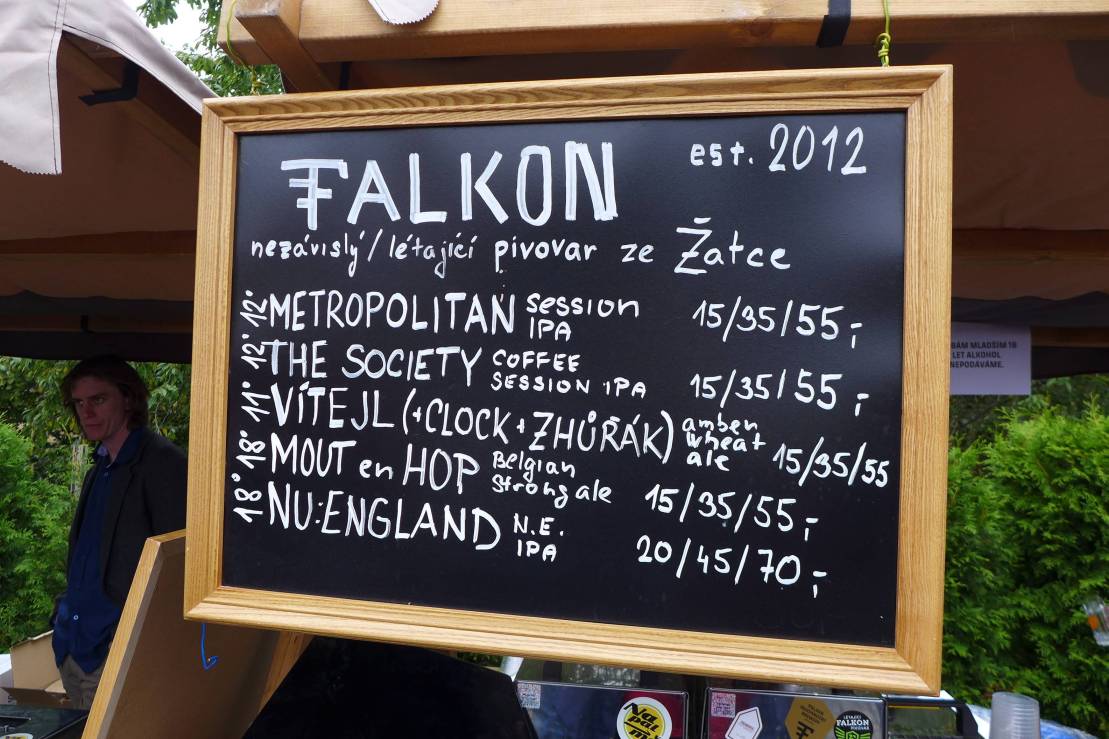 FALKON est. 2012
nezávislý/létající pivovar ze Žatce
12° METROPOLITAN session IPA 15/35/55,-
12° THE SOCIETY COFFEE SESSION IPA 15/35/55,-
11° VÍTEJL (+CLOCK + ZHŮŘÁK) amber wheat ale 15/35/55
18° MOUT en HOP Belgian Strong ale 15/35/55,-
18° NU:ENGLAND N.E. IPA 20/45/70,-
BÁM MLADŠÍM 18
LET ALKOHOL
NEPODÁVÁME.
LÉTAJÍCÍ
FALKON
PIVOVAR